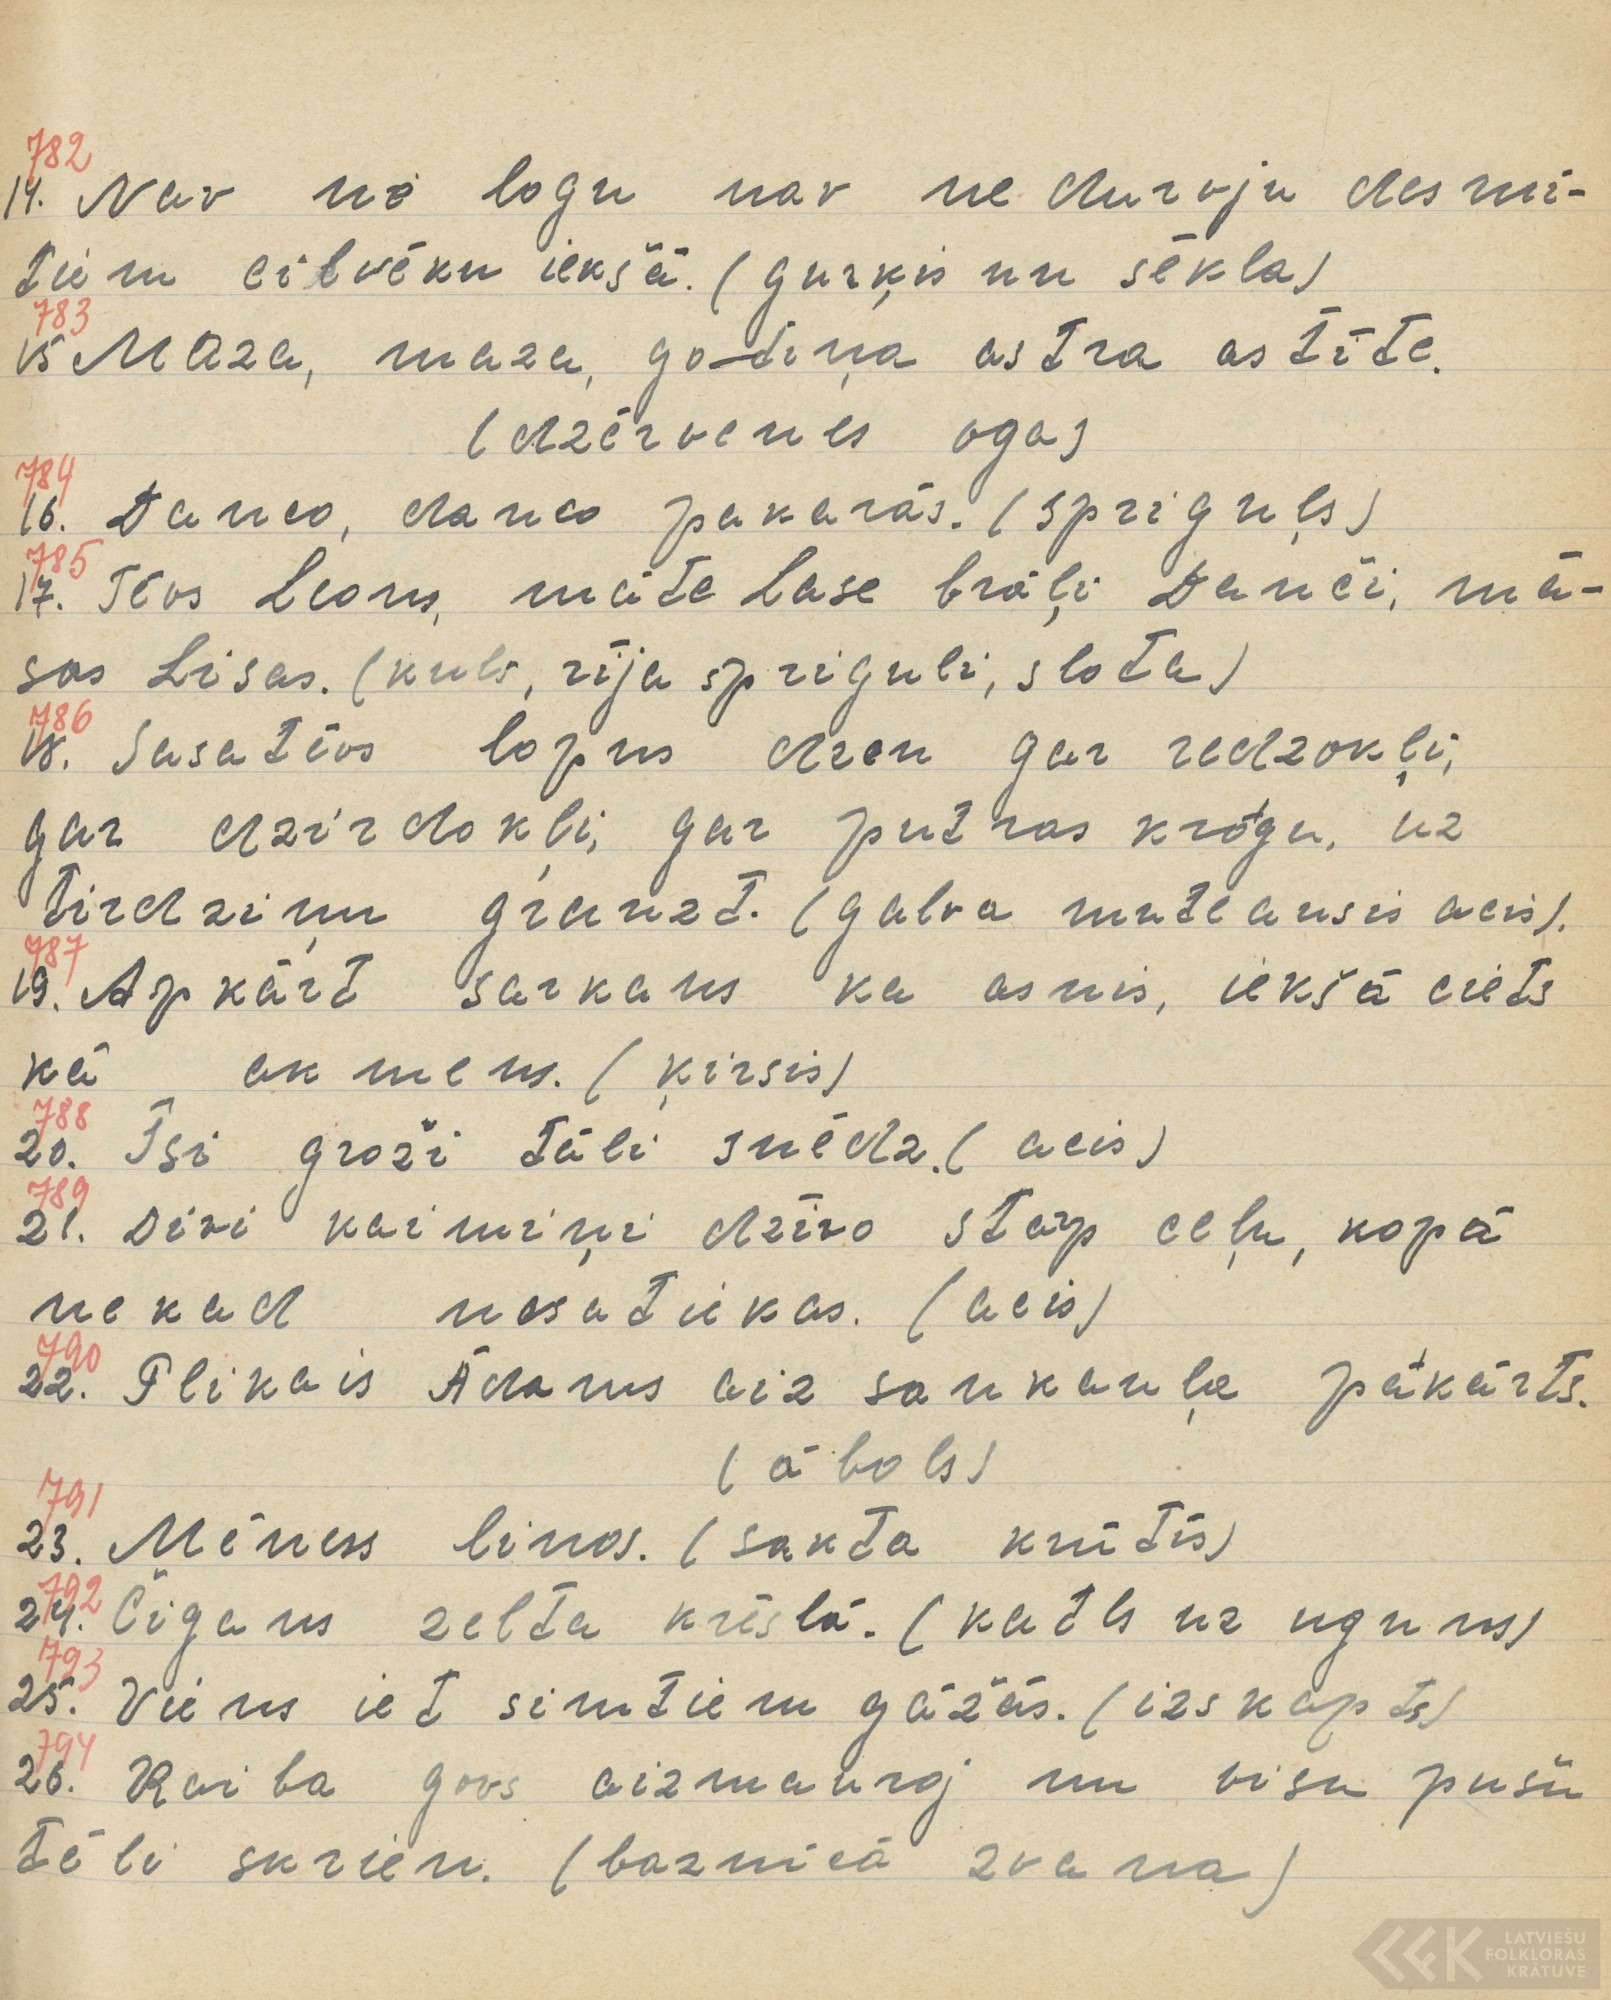 782
14. Nav ne logu nav ne durvju desmi-
tiem cilvēku iekšā. (gurķis un sēkla)
783
15 Maza, maza, gotiņa astra astīte.
(dzērvenes oga)
784
16. Danco, danco pakarās. (spriguļs)
785
17. Tēvs Leons, māte Lase brāļi Danči, mā-
sas Lisas. (kuls, rīja spriguli, slota)
786
18. Sasatēvs lopus dzen gar redzokļi,
gar dzirdokļi, gar putras krogu, uz
tirdziņu grauzt. (galva mute ausis acis).
787
19. Apkārt sarkans ka asnis, iekšā ciets
kā akmens. (ķirsis)
788
20. Īsi groži tāli snēdz. (acis)
789
21. Divi kaimiņi dzīvo starp ceļu, kopā
nekad nesatiekas. (acis)
790
22. Plikais Ādams aiz sankauļa pakārts.
(ābols)
791
23. Mēness linos. (sakta krūtīs)
792
24. Čigans zelta krēslā. (katls uz uguns)
793
25. Viens iet simtiem gāžās. (izskapts)
794
26. Raiba govs aizmauroj un visu pušu
tēli skrien. (baznīcā zvana)
LATVIEŠU
FOLKLORAS
KRĀTUVE